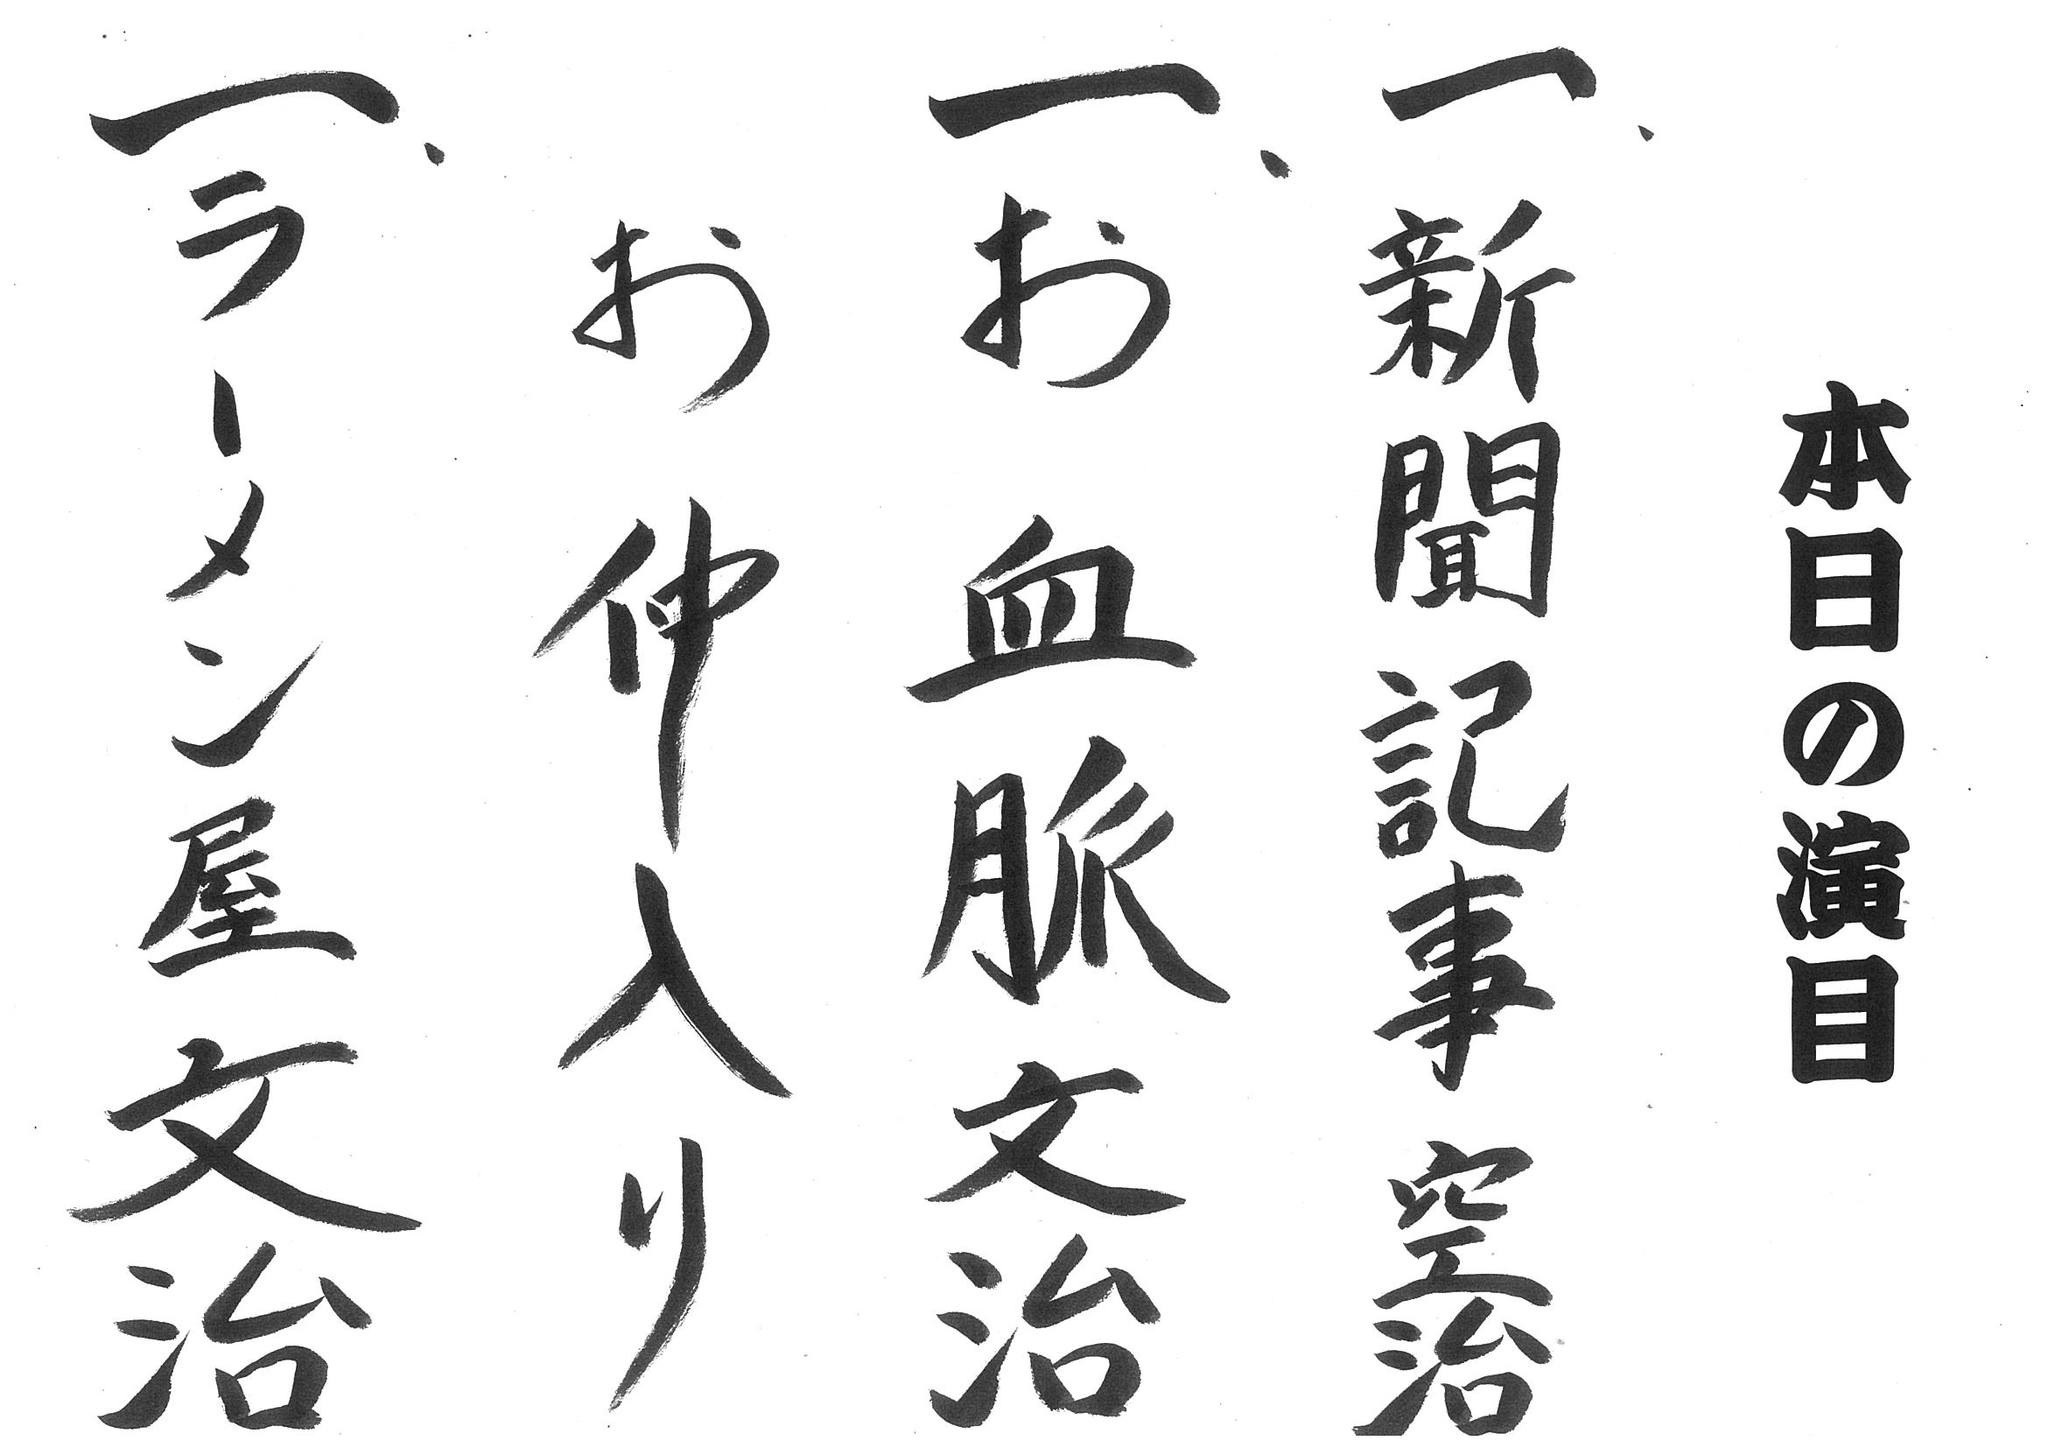 本日の演目
一、新聞記事 空治
一、お血脈 文治
お仲入り
一、ラーメン屋 文治